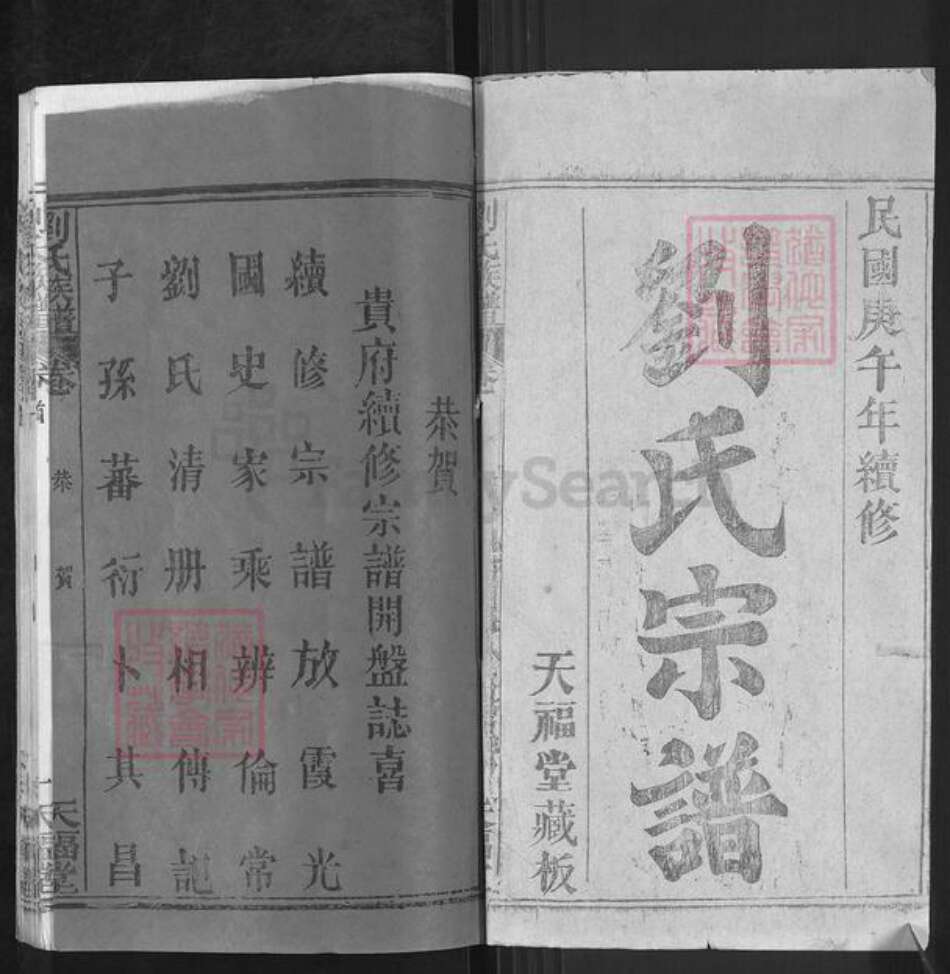 民國庚午年續修
劉氏宗譜
天福堂藏板
恭賀
貴府續修宗譜開盤誌喜
續修宗譜放霞光
國史家乘辨倫常
劉氏清册相傳記
子孫蕃衍卜其昌
劉氏族譜 卷首 恭賀 天福堂
FamilySearch